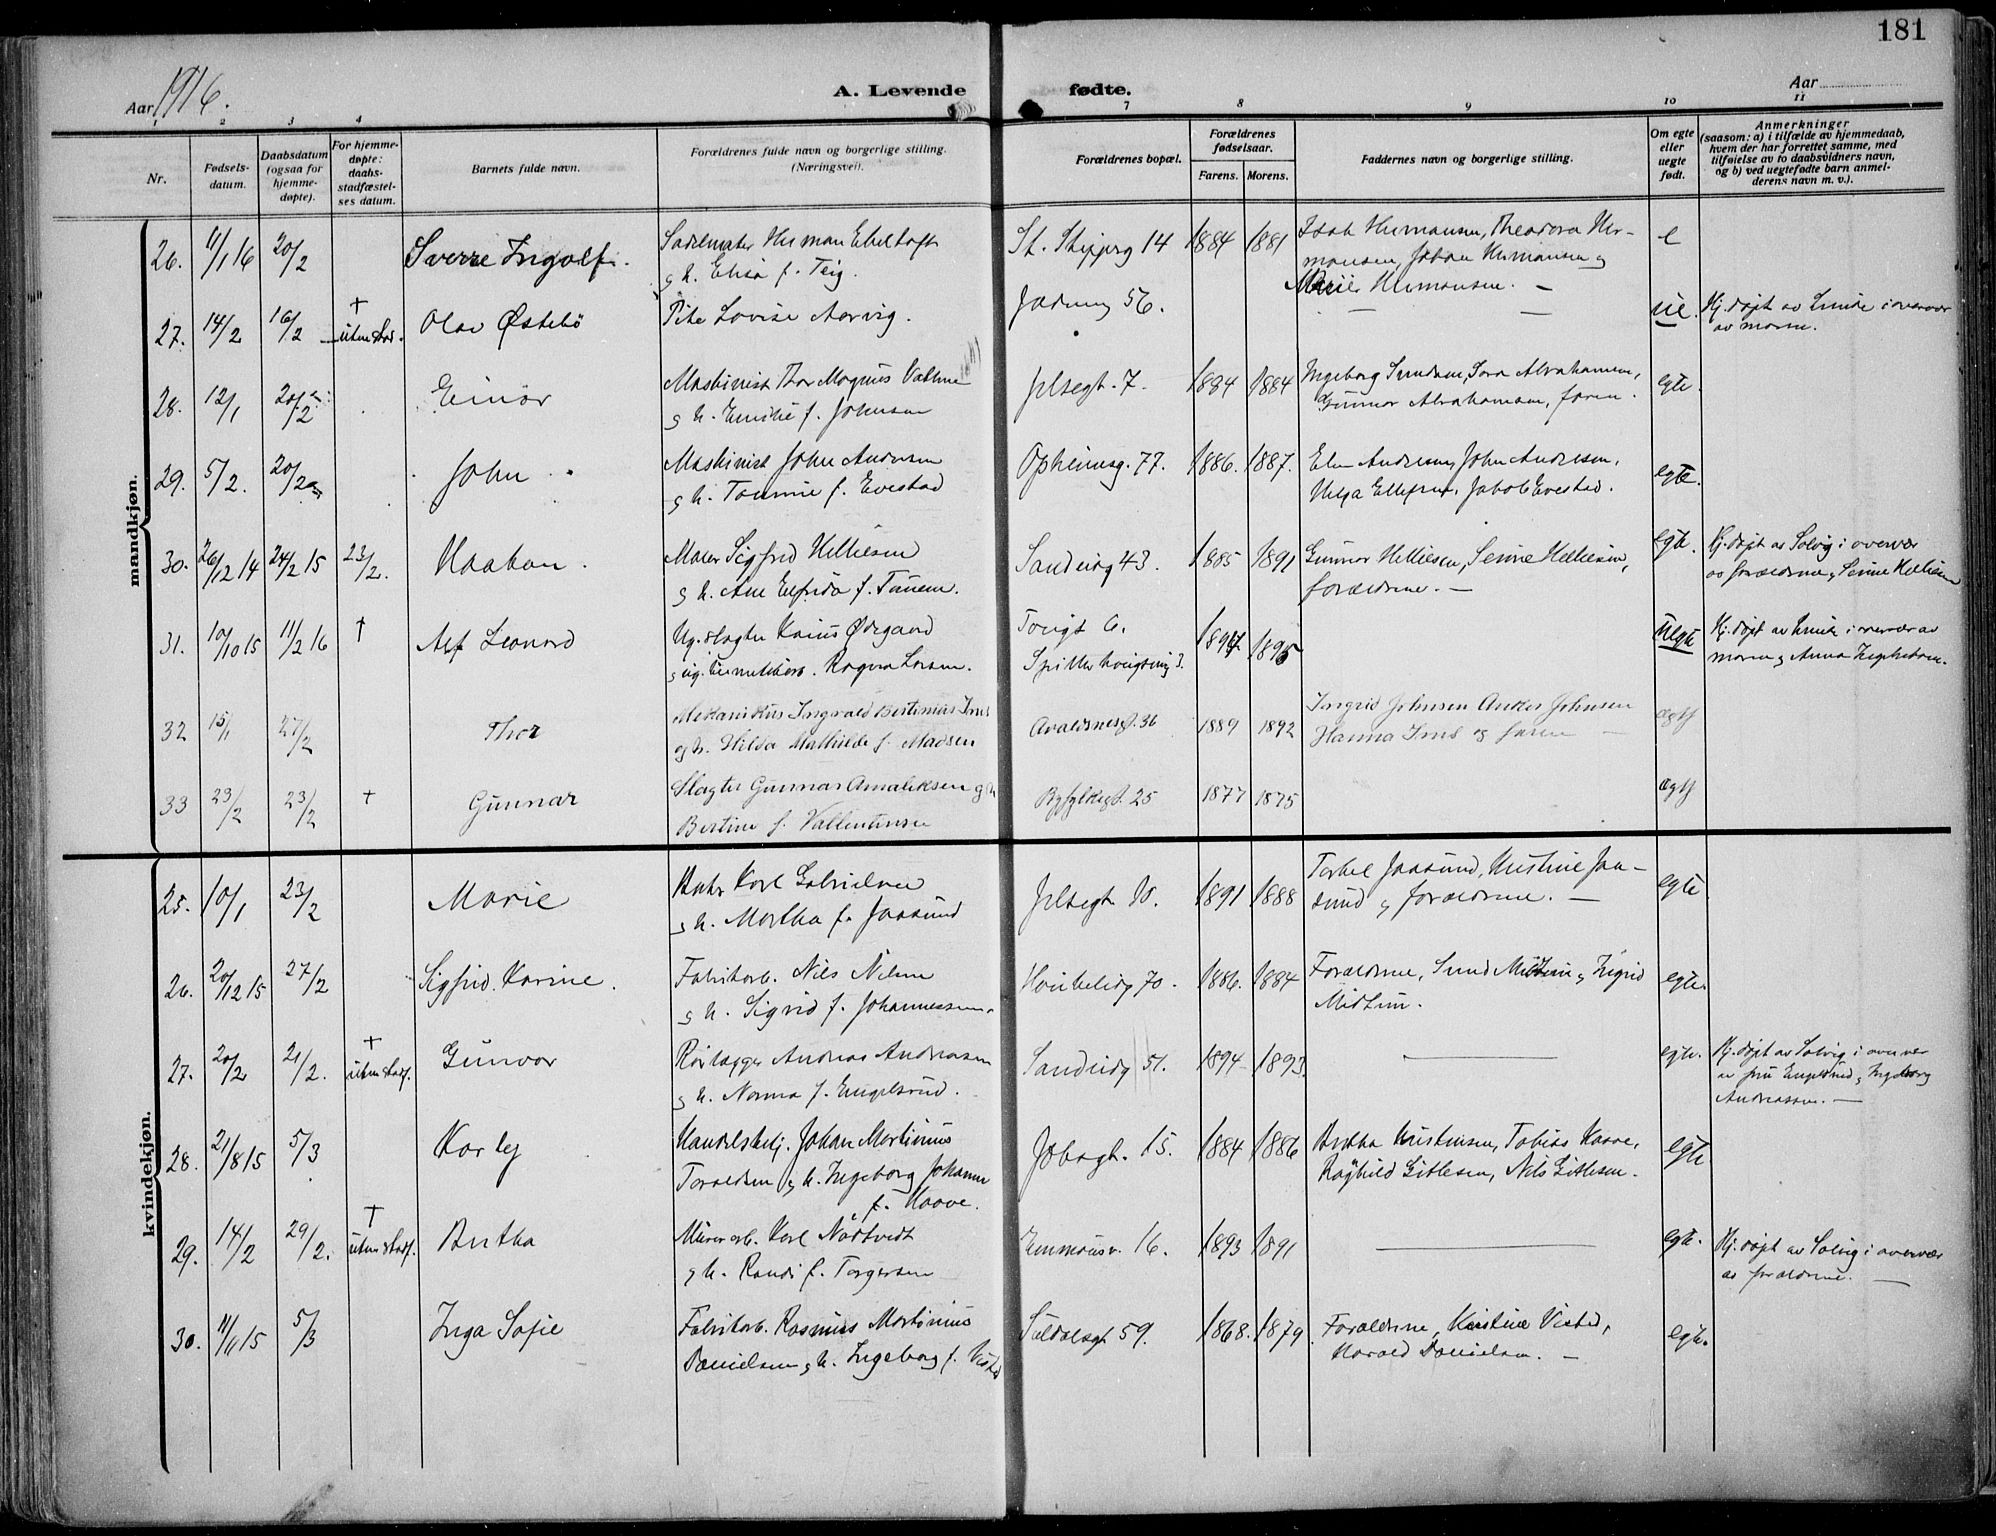 181
Aar 1916.
A. Levende fødte.
Aar
1 2 3 4 7 8 9 10 11
Nr.
Fødsels-
datum.
Daabsdatum
(ogsaa for
hjemme-
døpte).
For hjemme-
døpte:
daabs-
stadfæstel-
ses datum.
Barnets fulde navn.
Forældrenes fulde navn og borgerlige stilling.
(Næringsvei).
Forældrenes bopæl.
Forældrenes
fødselsaar.
Farens. Morens.
Faddernes navn og borgerlige stilling.
Om egte
eller
uegte
født.
Anmerkninger
(saasom: a) i tilfælde av hjemmedaab,
hvem der har forrettet samme, med
tilføielse av to daabsvidners navn,
og b) ved uegtefødte barn anmel-
derens navn m. v.).
mandkjøn.
26. 11/1 16 20/2 Sverre Ingolf.
g h. Elisa f. Teig.
14 1884 1881
Theodora Her-
mansen, Johan Hermansen g
Hermansen. —
e
27. 14/2 16/2 † uten stad. Olav Østebö
Lovise Aarvig.
56. — —
ue. Hj. døpt av i overvær
av moren.
28. 12/1 20/2 Einar
Maskinist Thor Magnus
g h. Emilie f. Johnsen
Jelsegt. 7. 1884 1884
Ingeborg Sara Abrahamsen,
Gunnar Abrahamsen, faren.
egte.
29. 5/2. 20/2 John
Maskinist John Andresen
g h. Tomine f. Evestad
Opheimsg. 77. 1886. 1887.
John Andresen,
Helga Ellefsen, Jakob Evestad.
egte.
30. 26/12 14 24/2 15 23/2. Haakon.
Maler Sigfrid Helliesen
g h. Ane Elfrida f. Tanem.
43. 1885 1891
Gunnar Helliesen, Serine Helliesen,
forældrene. —
egte. Hj. døpt av Solvig i overvær
av forældrene g Serine Helliesen
31. 10/10 15 11/2 16 † Alf Leonard
Ug. slagter Ødegaard
Ragna Larsen.
6. 1894 1895
3.
uegte Hj. døpt av i overvær av
moren g Anna
32 15/1 27/2 Thor
Mekanikus Ingvald Bertinius Ims
og h. Hilda Mathilde f. Madsen
Avaldsnesgt. 36 1889 1892
Ingrid Johnsen Anker Johnsen
Hanna Ims og faren —
ægtf
33 23/2 23/2 † Gunnar
Slagter Gunnar Amaliksen g h
Bertine f. Vallentinsen
Ryfylkegt. 25 1877 1875
ægtf
kvindekjøn.
25. 10/1 23/2 Marie
Karl Gabrielsen
g h. Martha f. Jaasund
Jelsegt. 10. 1891 1888
Jaasund, Kristine Jaa-
sund g forældrene. —
egte
26. 20/12 15 27/2 Sigfrid Karine.
Fabrikarb. Nils Nilsen
g h. Sigrid f. Johannessen.
70. 1886. 1884
Forældrene, g Sigrid
Midtun.
egte.
27. 20/2 21/2. † uten stadf. Gunvor
Rørlægger Andreas Andreasen
g h. Norma f. Engelsrud.
51. 1894 1893. —
egte. Hj. døpt av Solvig i overvær
av fru Engelsrud g Ingeborg
Andreassen. —
28. 21/8 15 5/3 Karly
Handelsbetj. Johan Martinius
Toraldsen g h. Ingeborg Johanne
f. Haave.
15. 1884 1886
Kristensen, Tobias Haave,
Ragnhild Gitlesen, Nils Gitlesen.
egte
29. 14/2 29/2. † uten stadf. Bertha
Murerarb. Karl Nödtvedt
g h. Randi f. Torgersen
Emmausv. 16. 1893 1891 —
egte. Hj. døpt av Solvig i overvær
av forældrene. —
30. 11/11 15 5/3 Inga Sofie
Fabrikarb. Rasmus Martinius
Danielsen g h. Ingeborg f. Visted
Suldalsgt 59. 1868. 1879.
Forældrene, Kristine Visted,
Harald Danielsen. —
egte.